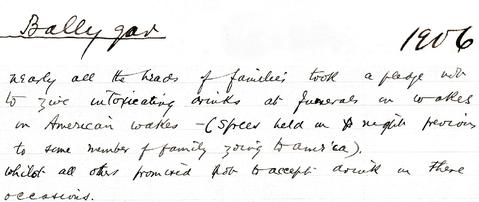 Ballygar
1906
nearly all the heads of families took a pledge not
to give intoxicating drinks at funerals or wakes
or American wakes - (Sprees held on night previous
to some member of family going to America).
whilst all others promised not to accept drink on these
occasions.